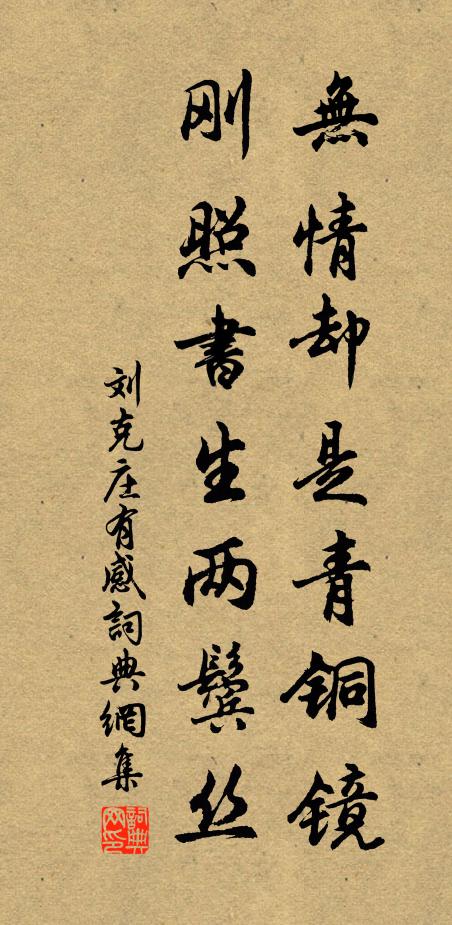 無情却是青铜镜
刚照書生两鬓丝
刘克庄有感詞典網集
詞典网印